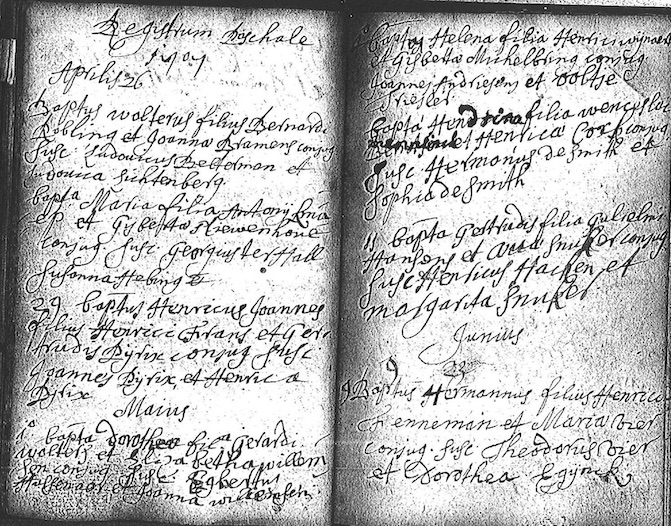 Registrum Paschale
1707
Aprilis 26
Baptus wolterus filius Bernardi
Robling et Joanna Bramens conjug
susc. Ludovicus Belterman et
Ludovica Lichtenberg
bapta Maria filia Antonij
et Gisberta Niewenhove
conjug susc. Georgius ter Hall
Susanna Hebing
29 baptus Henricus Joannes
filius Henrici Frans et Ger
trudis Dyrix conjug susc
Joannes Dyrix et Henrica
Dyrix
Maius
1o bapta dorothea filia Gerardi
wolters et Elisabetha willem
sen conjug susc. Egbertus
et Joanna
bapta Helena filia Henrici
et Gisberta Michelbring conjug
Joannes Andriesens et
Friesler
bapta Hendrina filia wencesla
et Henrica conjug
susc Hermanus de Smith et
Sophia de Smith
11 bapta Gertrudis filia Gulielmi
Hansens et Anna Snuker conjug
susc Henricus Hacken et
margarita Snuker
Junius
9 28
9 Baptus Hermannus filius Henrici
Fenneman et Maria vier
conjug. susc Theodorus vier
et Dorothea Egynck